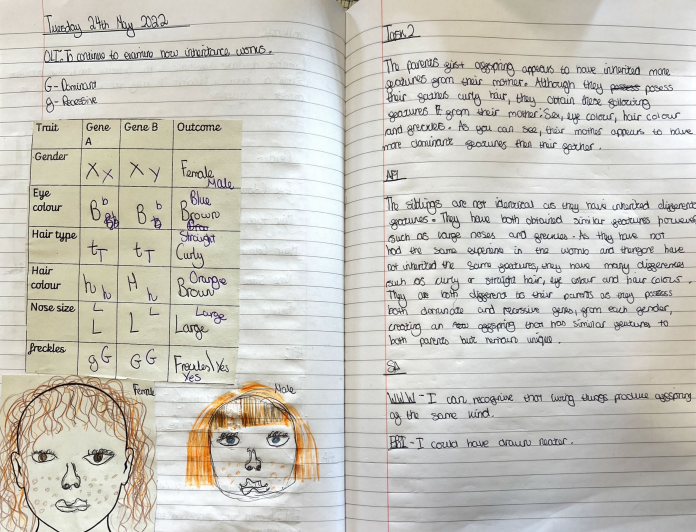 Tuesday 24th May 2022
OLI-To continue to examine how inheritance works.
G - Dominant
g - Recessive
Trait Gene A Gene B Outcome
Gender X x X y Female Male
Eye colour B b B b Blue Brown
Hair type t T t T Straight Curly
Hair colour h h H h Orange Brown
Nose size L L L L Large Large
freckles g G G G Freckles\Yes Yes
Female
Male
Task 2
The parents first offspring appears to have inherited more
features from their mother. Although they posess
their fathers curly hair, they obtain these following
features from their mother: Sex, eye colour, hair colour
and freckles. As you can see, their mother appears to have
more dominant features then their father.
API
The siblings are not identical as they have inherited different
features. They have both obtained similar features however
such as large noses and freckles. As they have not
had the same experince in the womb and therefore have
not inherited the same features, they have many differences
such as curly or straight hair, eye colour and hair colour.
They are both different to their parents as they possess
both dominate and recessive genes, from each gender,
creating an offspring that has similar features to
both parents but remain unique.
SA
WWW - I can recognise that living things produce offspring
of the same kind.
EBI - I could have drawn neater.